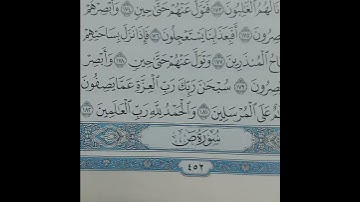 نَا لَهُمُ ٱلْغَـٰلِبُونَ ١٧٣ فَتَوَلَّ عَنْهُمْ حَتَّىٰ حِينٍ ١٧٤ وَأَبْصِرْهُمْ
صِرُونَ ١٧٥ أَفَبِعَذَابِنَا يَسْتَعْجِلُونَ ١٧٦ فَإِذَا نَزَلَ بِسَاحَتِهِمْ
احُ ٱلْمُنذَرِينَ ١٧٧ وَتَوَلَّ عَنْهُمْ حَتَّىٰ حِينٍ ١٧٨ وَأَبْصِرْ
صِرُونَ ١٧٩ سُبْحَـٰنَ رَبِّكَ رَبِّ ٱلْعِزَّةِ عَمَّا يَصِفُونَ
مٌ عَلَى ٱلْمُرْسَلِينَ ١٨١ وَٱلْحَمْدُ لِلَّهِ رَبِّ ٱلْعَـٰلَمِينَ ١٨٢
سُورَةُ صٓ
٤٥٢